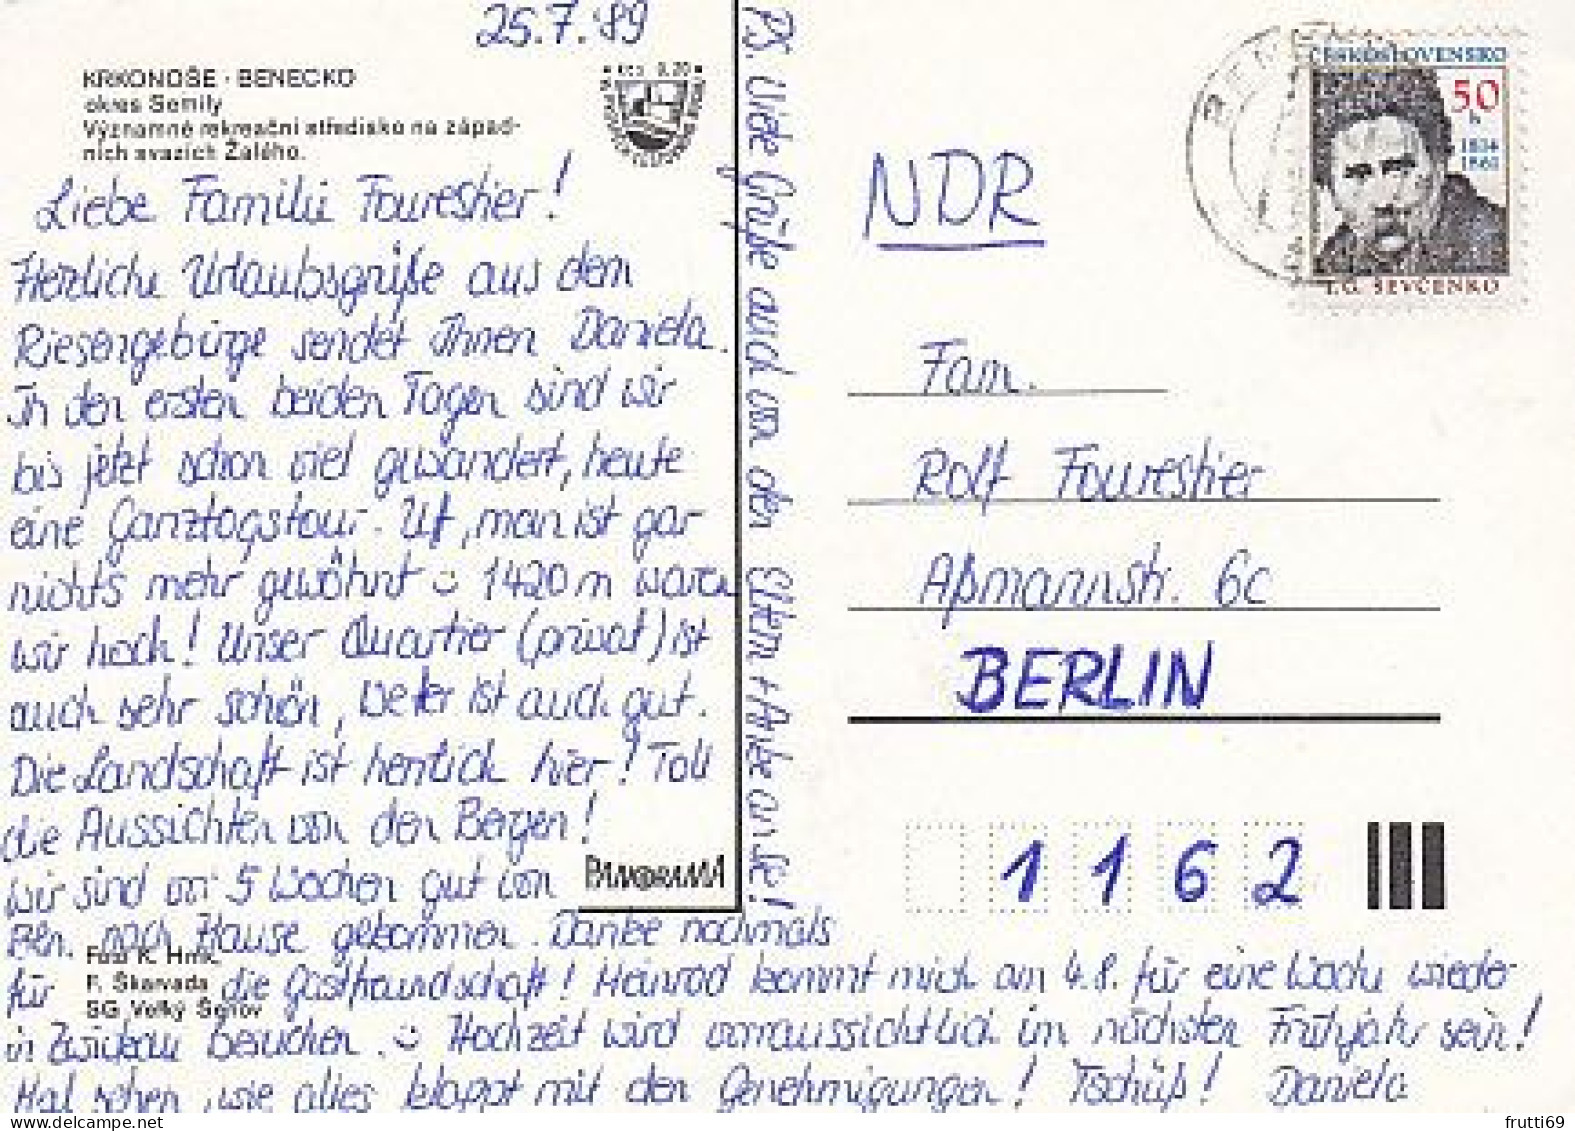 25.7.'89
KRKONOŠE · BENECKO
okres Semily
Významné rekreační středisko na západ-
ních svazích Žalého.
Liebe Familie Fourestier!
Herzliche Urlaubsgrüße aus dem
Riesengebirge sendet Ihnen Daniela.
In den ersten beiden Tagen sind wir
bis jetzt schon viel gewandert, heute
eine Ganztagstour. Uff, man ist gar
nichts mehr gewöhnt 1420 m waren
wir hoch! Unser Quartier (privat) ist
auch sehr schön, Wetter ist auch gut.
Die Landschaft ist herrlich hier! Toll
die Aussichten von den Bergen!
Wir sind vor 5 Wochen gut von
nach Hause gekommen. Danke nochmals
für die Gastfreundschaft! Heinrod kommt mich am 4.8. für eine Woche wieder
in Zwickau besuchen. Hochzeit wird vorraussichtlich im nächsten Frühjahr sein!
Mal sehen, wie alles klappt mit den Genehmigungen! Tschüß! Daniela
PANORAMA
Foto K. Hník,
F. Skarvada
SG Velký Šenov
PS. Viele Grüße auch von den Eltern + Antje an Sie!
ČESKOSLOVENSKO
50
h
1814
1861
T.G. ŠEVČENKO
NDR
Fam.
Rolf Fourestier
Aßmannstr. 6c
BERLIN
1 1 6 2
frutti69